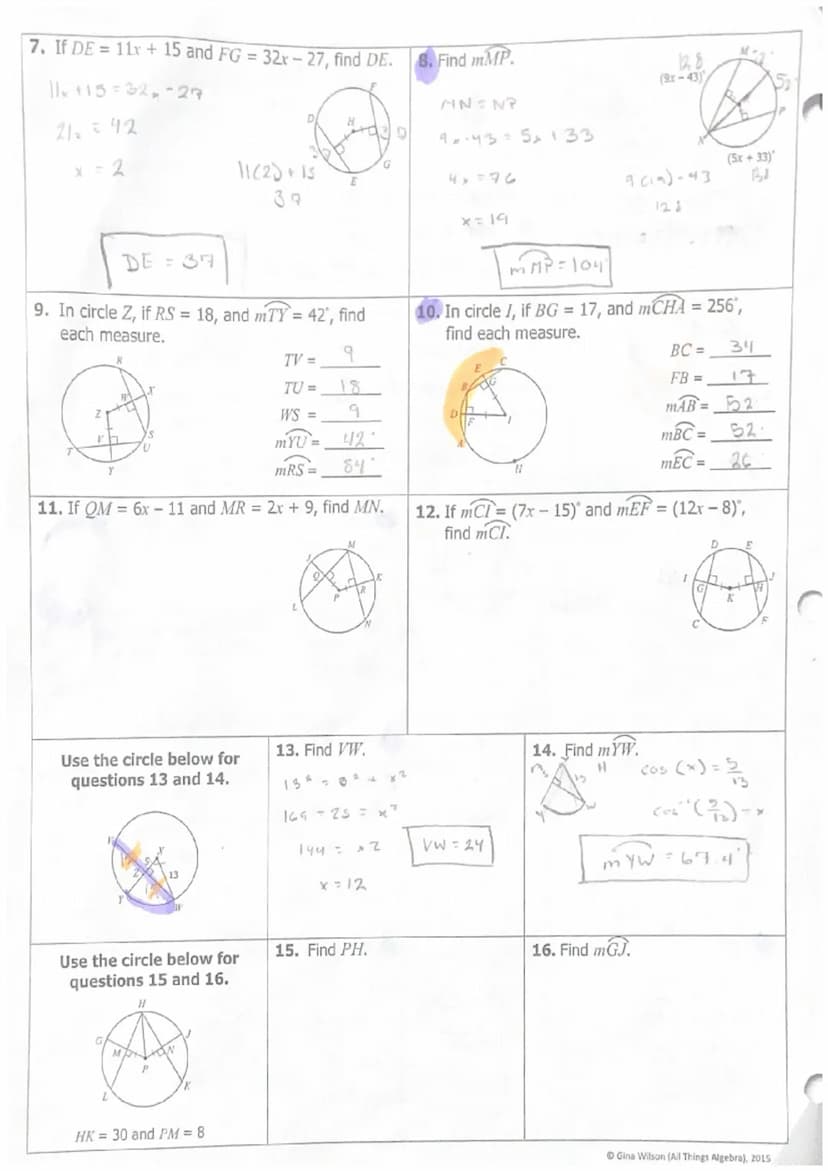 7. If DE = 11x + 15 and FG = 32x – 27, find DE.
11x +15 = 32x -27
21x = 42
x = 2
11(2) + 15
37
DE = 37
D
F
H
G
E
8. Find mMP.
MN = NP
9x-43 = 5x + 33
4x = 76
x = 19
9(19) - 43
128
mMP = 104°
128
(9x – 43)°
M
52
P
N
(5x + 33)°
9. In circle Z, if RS = 18, and mTY = 42°, find
each measure.
R
W
X
Z
V
S
T
U
Y
TV = 9
TU = 18
WS = 9
mYU = 42°
mRS = 84°
10. In circle I, if BG = 17, and mCHA = 256°,
find each measure.
E
C
B
G
D
F
I
A
H
BC = 34
FB = 17
mAB = 52
mBC = 52°
mEC = 26
11. If QM = 6x – 11 and MR = 2x + 9, find MN.
J
M
Q
K
P
R
L
N
12. If mCI = (7x – 15)° and mEF = (12x – 8)°,
find mCI.
D
E
I
J
G
H
K
C
F
Use the circle below for
questions 13 and 14.
V
X
5
Z
13
Y
W
13. Find VW.
169 - 25 = x²
144 = x²
x = 12
VW = 24
14. Find mYW.
cos (x) = 5/13
cos⁻¹ (5/13) = x
mYW = 67.4°
Use the circle below for
questions 15 and 16.
H
G
J
M
N
P
L
K
HK = 30 and PM = 8
15. Find PH.
16. Find mGJ.
© Gina Wilson (All Things Algebra), 2015